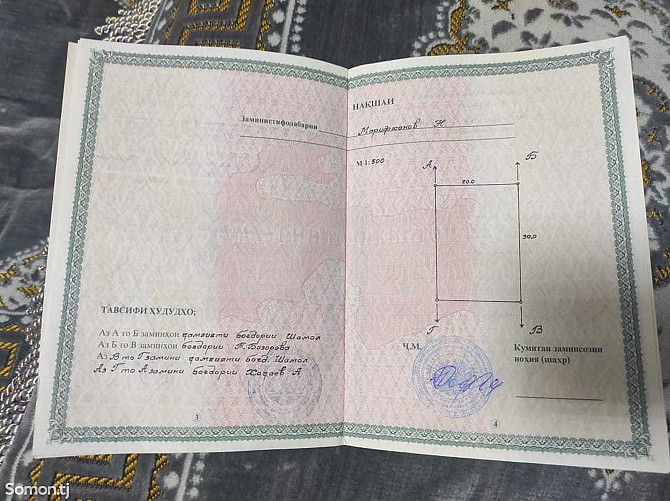 НАҚШАИ
Заминистифодабарии Марифжонов Н
М 1: 500
А
Б
20,0
30,0
Г
В
ТАВСИФИ ХУДУДҲО:
Аз А то Б заминҳои ҷамъияти боғдории Шамол
Аз Б то В заминҳои боғдории Т. Бозорова
Аз В то Г замини ҷамъияти боғд. Шамол
Аз Г то А замини боғдории Ҳодоев А
3
Ҷ.М.
Кумитаи заминсозии
ноҳия (шаҳр)
4
Somon.tj